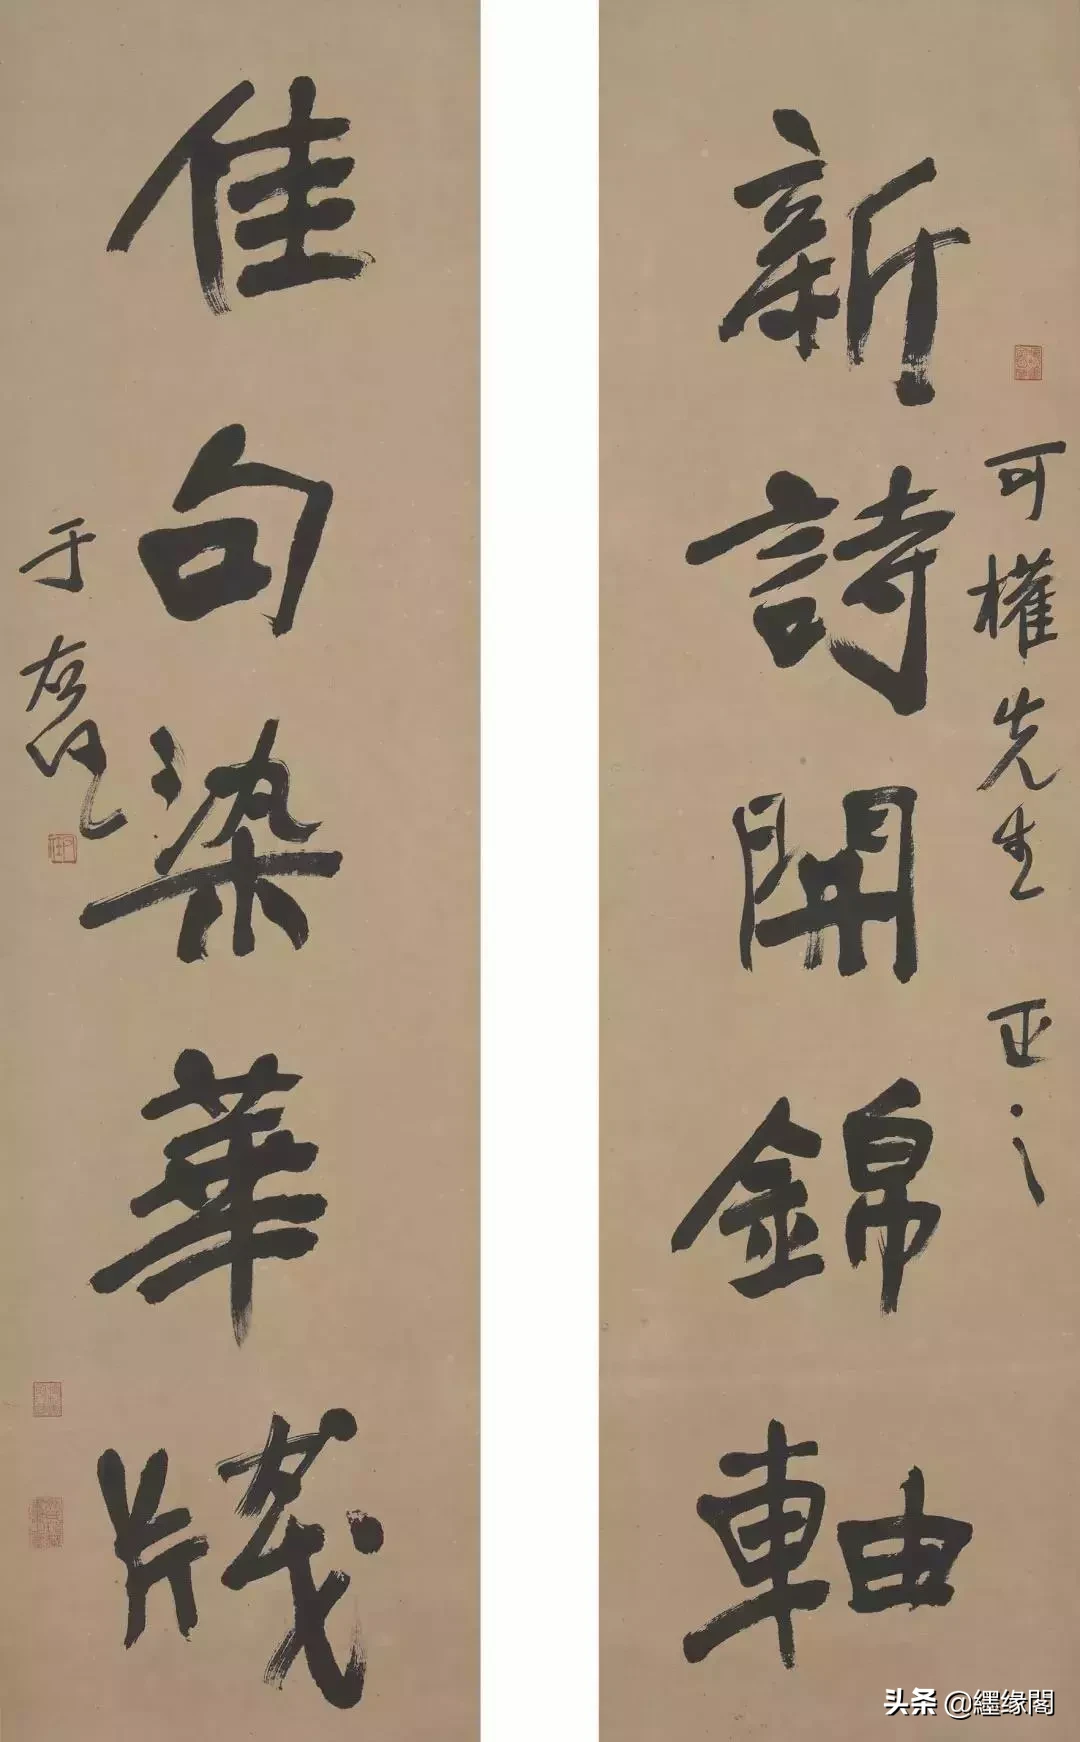 新詩開錦軸
可權先生 正之
佳句染華牋
于右任
头条 @纆缘閣